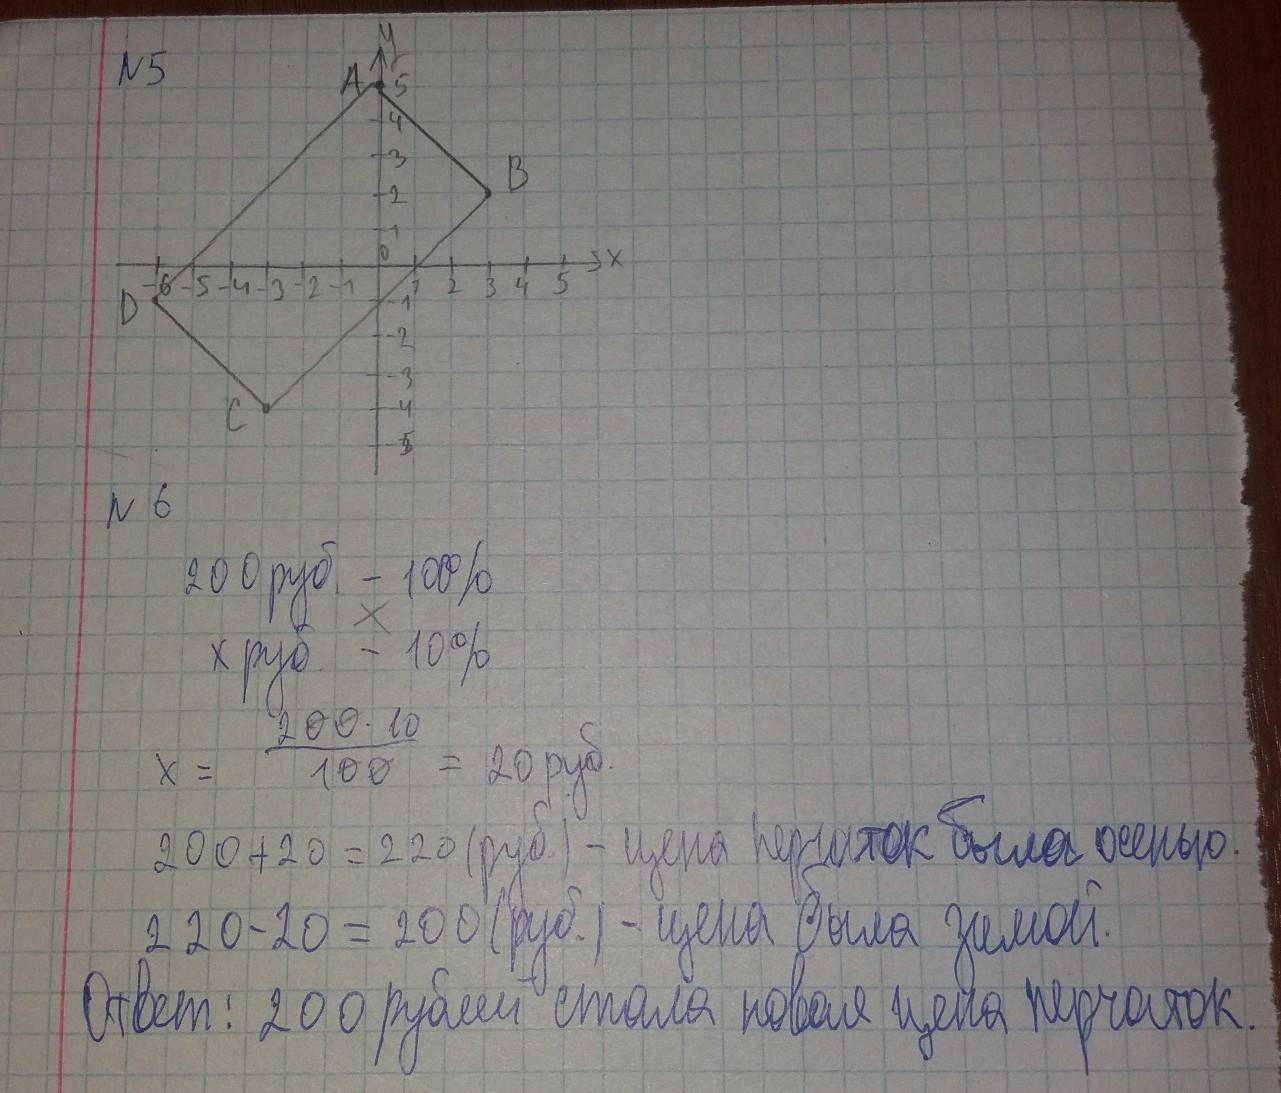 N5
y
A 5
4
3
B
2
1
0
x
-6 -5 -4 -3 -2 -1 1 2 3 4 5
D
-1
-2
-3
C -4
-5
N 6
200 руб. - 100%
x
x руб. - 10%
200 · 10
x = 100 = 20 руб.
200+20 = 220 (руб.) - цена перчаток была осенью.
220-20 = 200 (руб.) - цена была зимой.
Ответ: 200 рублей стала новая цена перчаток.